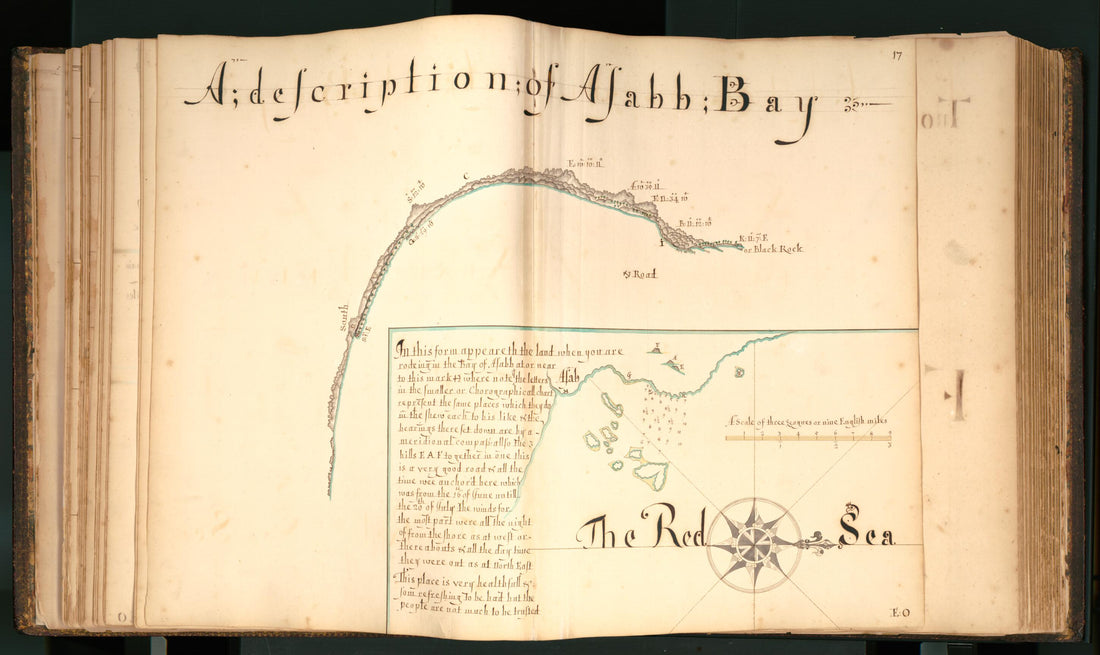 17
A; deſcription; of Aſabb; Bay 35
C
or Black Rock
Road
South
In this form appeareth the land when you are
rodeing in the Bay of Aſabb at or near
to this mark where note the letters
in the smaller or Chorographicall chart
repreſent the same places which they do
in the shew each to his like & the
bearings there set down are by a
meridional compaſs allſo the 3
hills E A F to gether in one this
is a very good road & all the
time wee anchord here which
was from the 16 of June untill
the 20 of July the winds for
the moſt part were all the night
of from the shore as at west or
there abouts & all the day time
they were out as at North East
This place is very healthfull &
som refreshing to be had but the
people are not much to be truſted
Aſab
G
H
A Scale of three Leagues or nine English miles
The Red Sea
E:O